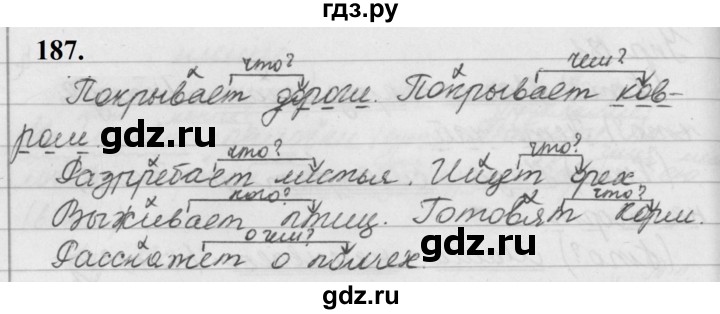 гдз.ру
187.
что? чем?
Покрывает дороги. Покрывает ков-
ром
gdz.ru gdz.ru
что? что?
Разгребает листья. Ищут орех
кого? что?
Выживает птиц. Готовят корм.
о чём?
Расскажет о пчёлах.
gdz.ru gdz.ru